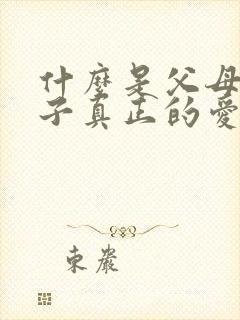 什麼是父母
子真正的愛
东嚴